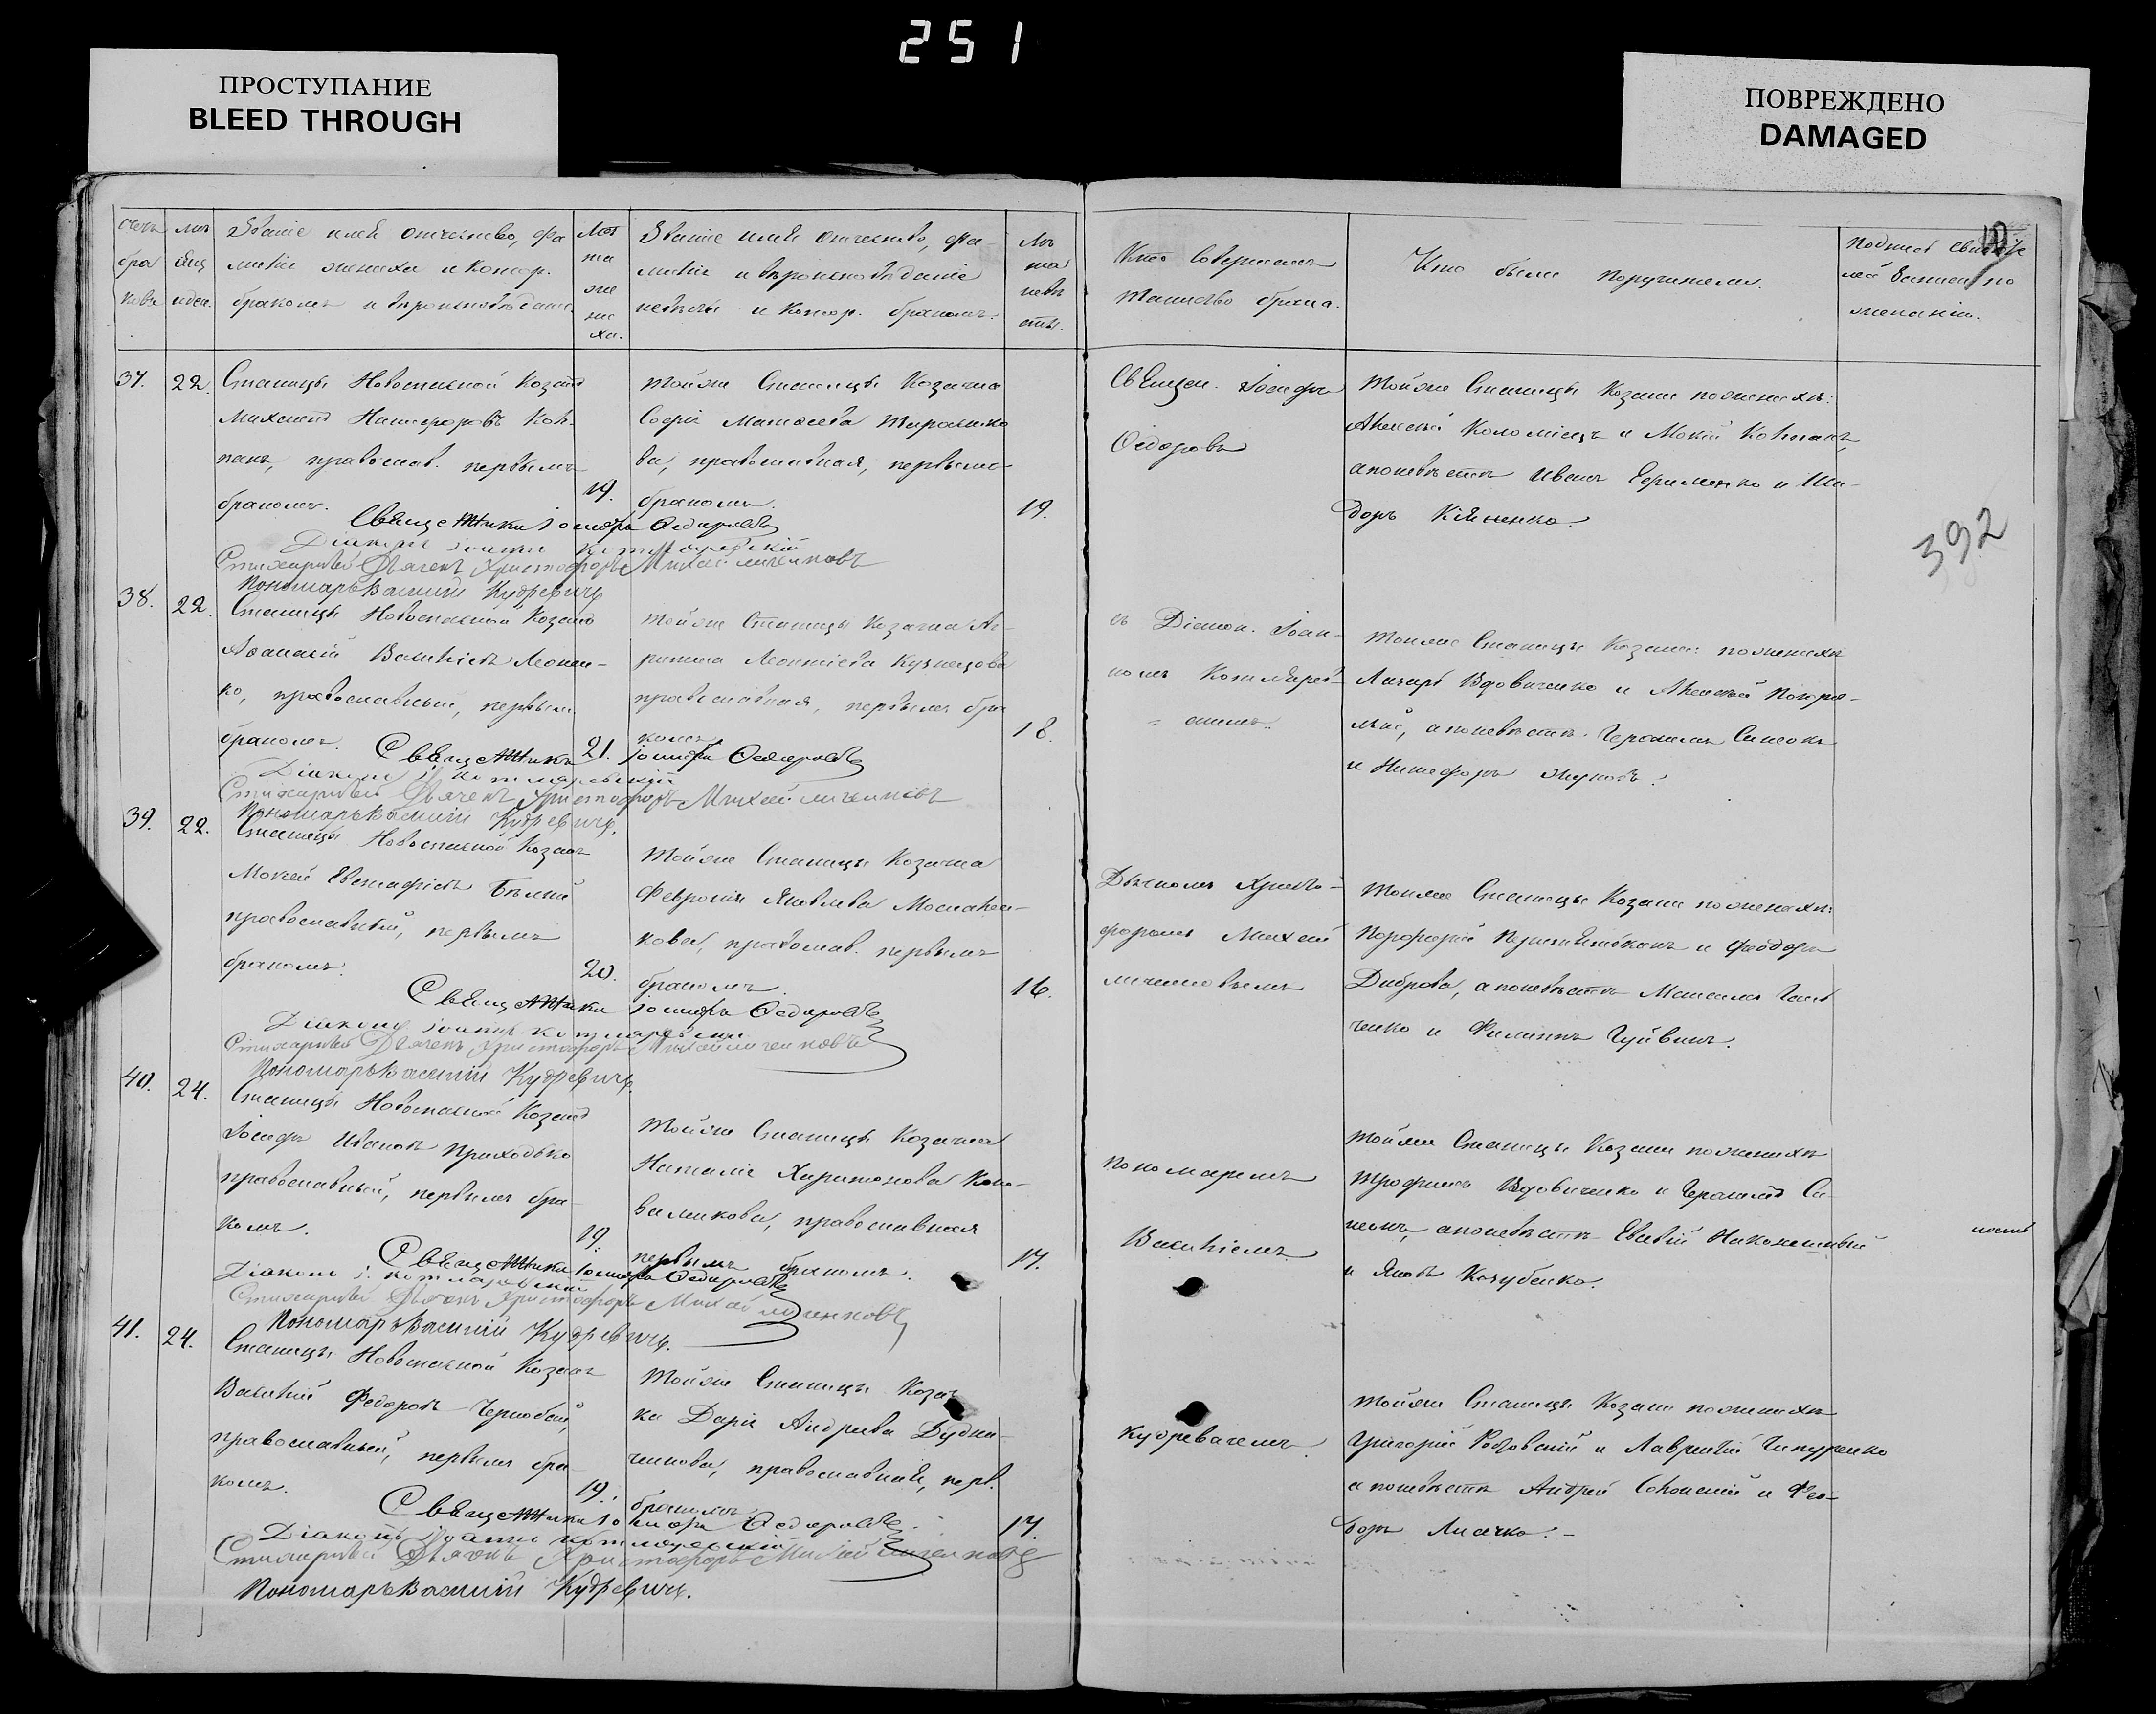 251
ПРОСТУПАНИЕ
BLEED THROUGH
ПОВРЕЖДЕНО
DAMAGED
Званіе имя отчество, фа
милія жениха и котор.
бракомъ и вѣроисповѣданіе
Лѣта
же
ни
ха.
Званіе имя отчество, фа-
милія и вѣроисповѣданіе
невѣсты и котор. бракомъ.
Лѣ
та
невѣ
сты.
Кто совершалъ
таинство брака.
Кто были поручители.
10
37.
22.
Станицы Новоспасной Козакъ
Михаилъ Никифоровъ Кол-
пакъ, православ. первымъ
бракомъ.
19.
тойже Станицы Козачка
Софія Матѳеева
ва, православная, первымъ
бракомъ.
19.
Священ. Іосифъ
Ѳедоровъ
тойже Станицы Козаки пожениху:
Алексѣй Коломіецъ и Мокій Колпакъ,
а поневѣстѣ Иванъ Ефименко и
доръ
392
Священникъ Іосифъ Ѳедоровъ
Діаконъ Іоаннъ Котляревскій
Стихарный Дьячекъ Христофоръ Михайличенковъ
Пономарь Василій Кудревичъ
38.
22.
Станицы Новоспасной Козакъ
Аѳанасій Васильевъ
ко, православный, первымъ
бракомъ.
21.
тойже Станицы Козачка
рипина Леонтіева Кузнецова
православная, первымъ бра
комъ.
18.
съ Діакон. Іоан-
номъ Котлярев-
скимъ.
Тойже Станицы Козаки: пожениху
Лазарь Вдовиченко и Алексѣй
а поневѣстѣ Герасимъ
и Никифоръ Жуковъ.
Священникъ Іосифъ Ѳедоровъ
Діаконъ І. Котляревскій
Стихарный Дьячекъ Христофоръ Михайличенковъ
Пономарь Василій Кудревичъ.
39.
22.
Станицы Новоспасной Козакъ
Мокій Евстафіевъ Бѣлый
православный, первымъ
бракомъ.
20.
тойже Станицы Козачка
Февронія Яковлева
кова, православ. первымъ
бракомъ.
16.
Дьячкомъ Христо-
форомъ Михай
личенковымъ
Тойже Станицы Козаки пожениху:
Порфирій и Феодоръ
Диброва, а поневѣстѣ
ченко и Филиппъ Чуйвинъ.
Священникъ Іосифъ Ѳедоровъ
Діаконъ Іоаннъ Котляревскій
Стихарный Дьячекъ Христофоръ Михайличенковъ
Пономарь Василій Кудревичъ.
40.
24.
Станицы Новоспасной Козакъ
Іосифъ Ивановъ Приходько
православный, первымъ бра-
комъ.
19.
Тойже Станицы Козачка
Наталія Харитонова Коно-
валикова, православная
первымъ бракомъ.
17.
Пономаремъ
Василіемъ
тойже Станицы Козаки пожениху
Трофимъ Вдовиченко и Герасимъ
а поневѣстѣ Евстафій Наконешный
и Яковъ Кочубенко.
Священникъ Іосифъ Ѳедоровъ
Діаконъ І. Котляревскій
Стихарный Дьячекъ Христофоръ Михайличенковъ
Пономарь Василій Кудревичъ.
41.
24.
Станицы Новоспасной Козакъ
Василій Федоровъ Чернобай,
православный, первымъ бра-
комъ.
19.
Тойже Станицы Козач
ка Дарія Андреева Дудни-
ченкова, православная, перв.
бракомъ.
17.
Кудревичемъ.
тойже Станицы Козаки пожениху
Григорій и Лаврентій
а поневѣстѣ Андрей и Фео-
доръ Лисачко.
Священникъ Іосифъ Ѳедоровъ
Діаконъ Іоаннъ Котляревскій
Стихарный Дьячекъ Христофоръ Михайличенковъ
Пономарь Василій Кудревичъ.